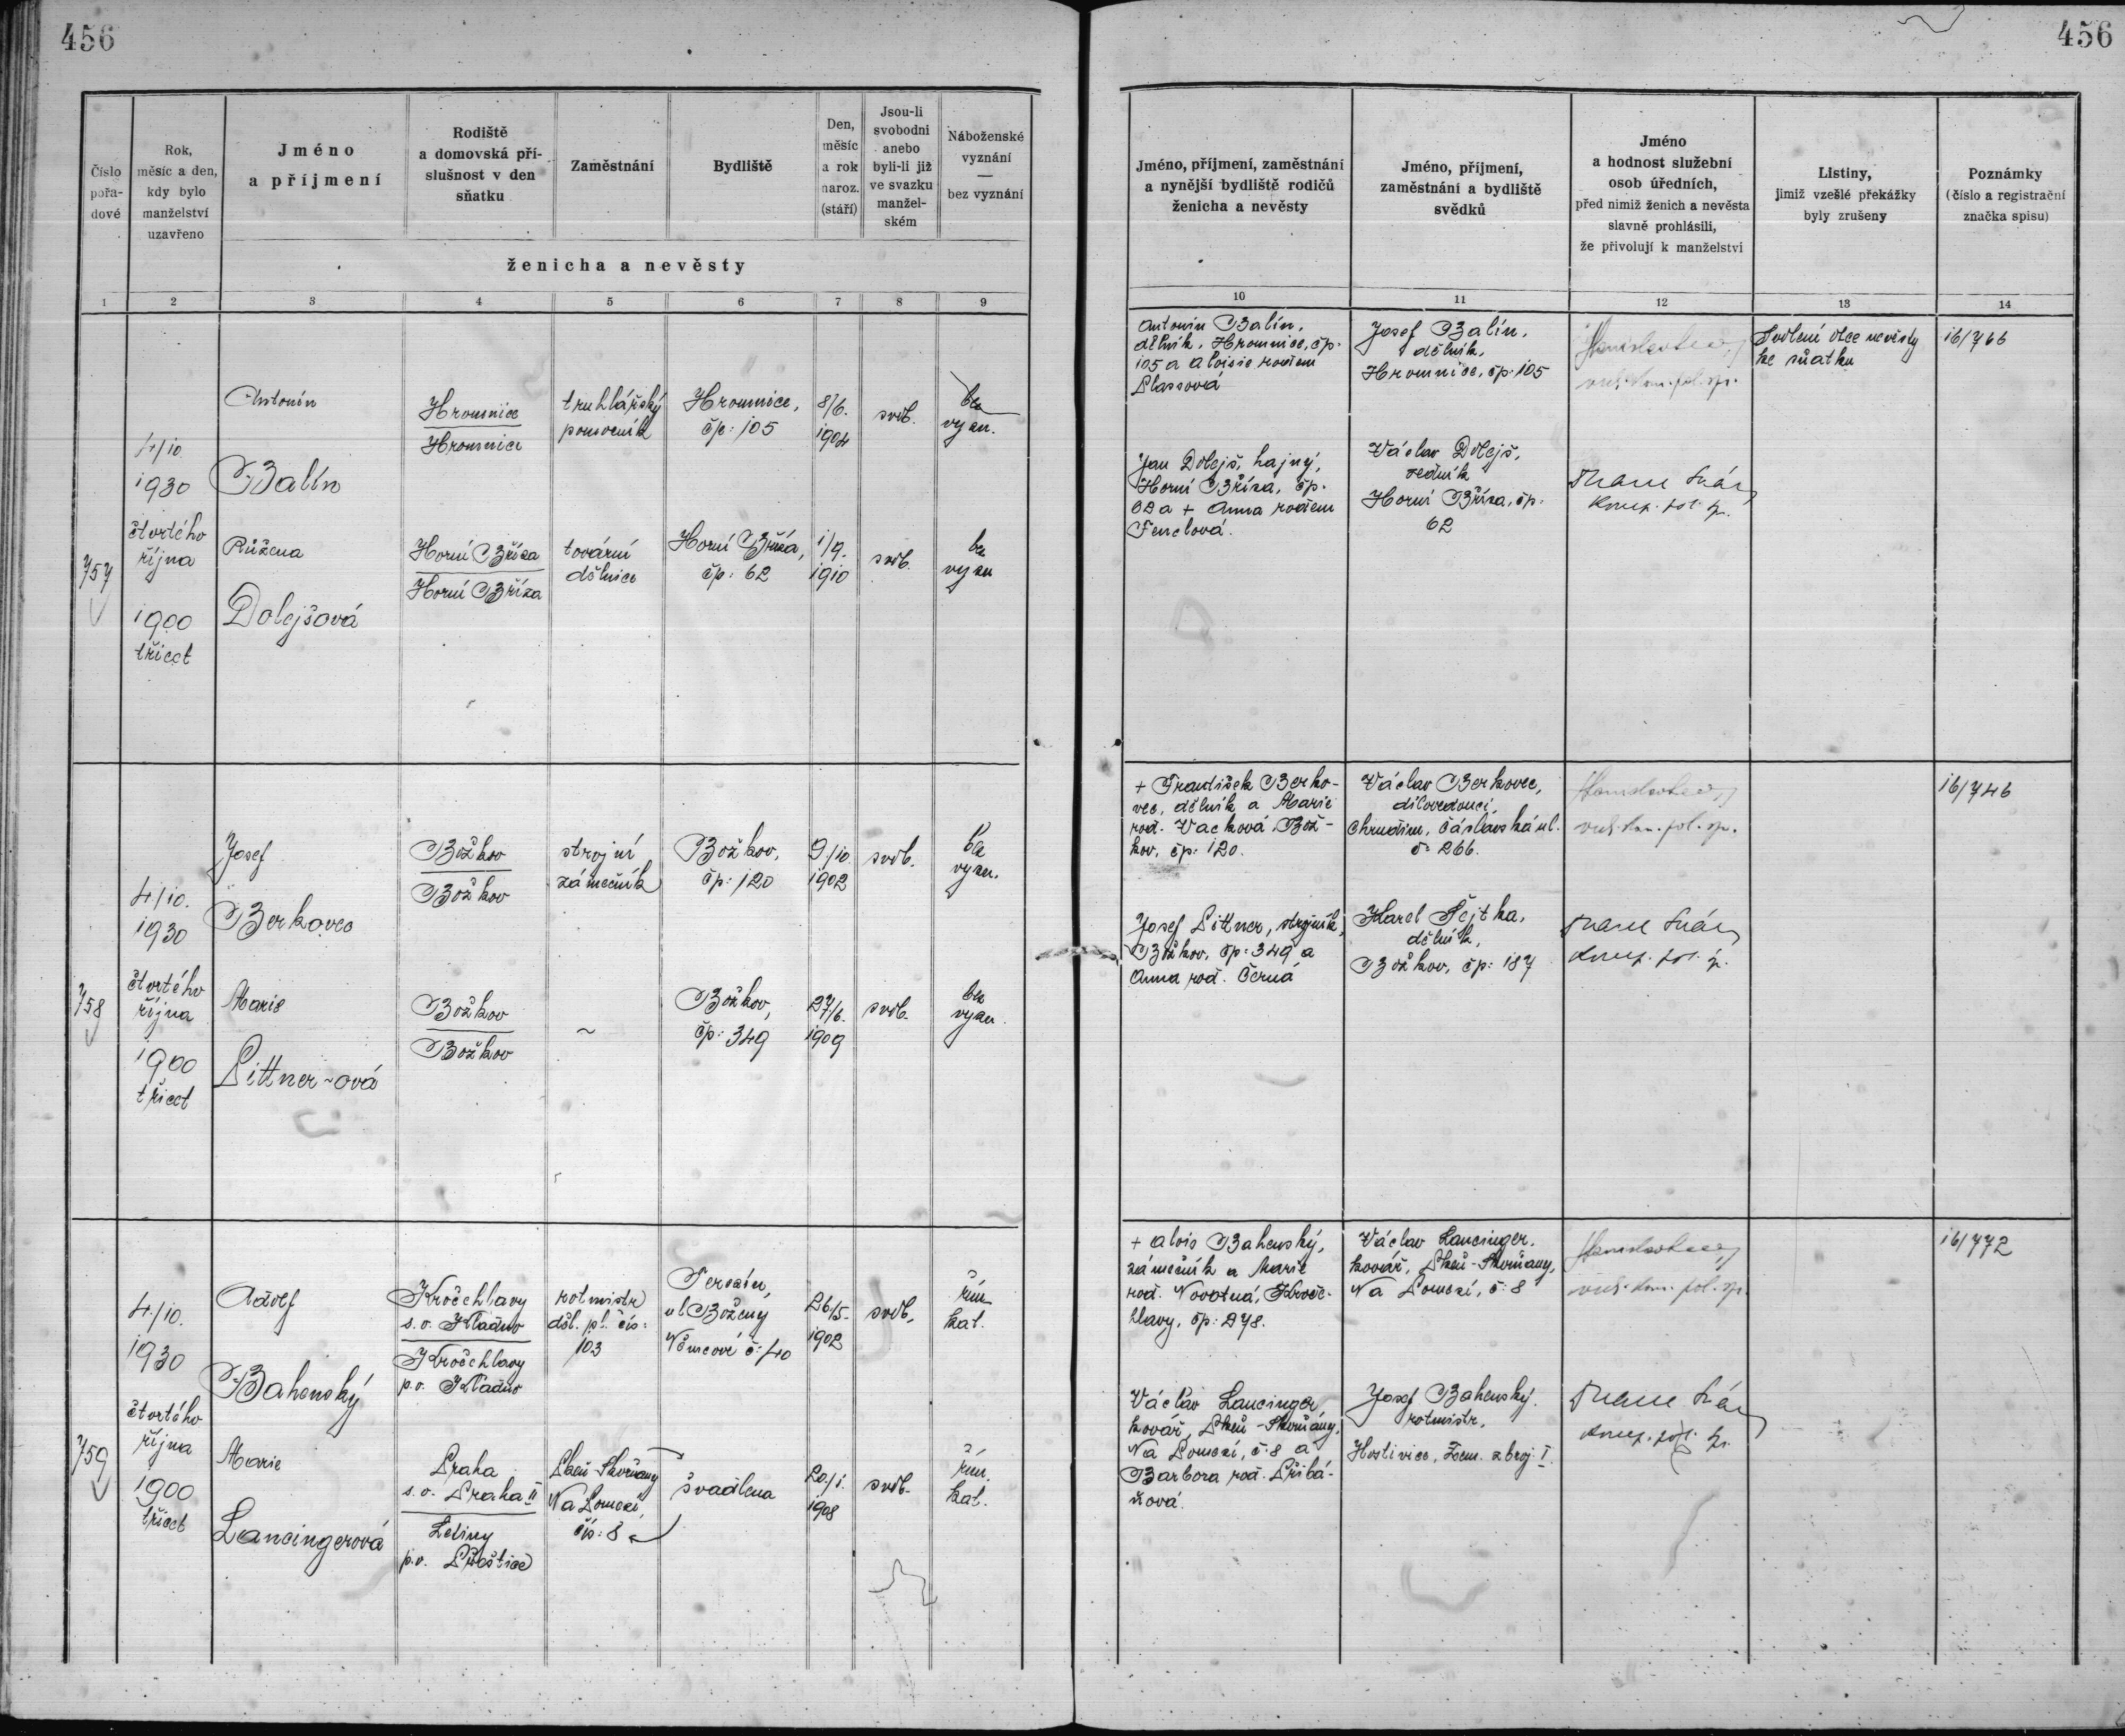 456
456
Číslo
pořa-
dové
Rok,
měsíc a den,
kdy bylo
manželství
uzavřeno
Jméno
a příjmení
Rodiště
a domovská pří-
slušnost v den
sňatku
Zaměstnání
Bydliště
Den,
měsíc
a rok
naroz.
(stáří)
Jsou-li
svobodni
anebo
byli-li již
ve svazku
manžel-
ském
Náboženské
vyznání
—
bez vyznání
ženicha a nevěsty
Jméno, příjmení, zaměstnání
a nynější bydliště rodičů
ženicha a nevěsty
Jméno, příjmení,
zaměstnání a bydliště
svědků
Jméno
a hodnost služební
osob úředních,
před nimiž ženich a nevěsta
slavně prohlásili,
že přivolují k manželství
Listiny,
jimiž vzešlé překážky
byly zrušeny
Poznámky
(číslo a registrační
značka spisu)
1 2 3 4 5 6 7 8 9
10 11 12 13 14
757
4/10
1930
čtvrtého
října
1900
třicet
Antonín
Balín
Hromnice
Hromnice
truhlářský
pomocník
Hromnice,
čp: 105
8/6.
1904
svob.
bez
vyzn.
Růžena
Dolejšová
Horní Bříza
Horní Bříza
tovární
dělnice
Horní Bříza,
čp: 62
1/9.
1910
svob.
bez
vyzn
Antonín Balín,
dělník, Hromnice, čp.
105 a Aloisie rodem
Plassová
Jan Dolejš, hajný,
Horní Bříza, čp.
62 a + Anna rodem
Fenclová.
Josef Balín,
dělník,
Hromnice, čp: 105
Václav Dolejš,
ředník
Horní Bříza, čp.
62
vrch. kom. pol. spr.
pol.
Svolení otce nevěsty
ke sňatku
16/766
758
4/10.
1930
čtvrtého
října
1900
třicet
Josef
Berkovec
Božkov
Božkov
strojní
zámečník
Božkov,
čp: 120
9/10.
1902
svob.
bez
vyzn.
Marie
Littner-ová
Božkov
Božkov
~
Božkov,
čp: 349
27/6.
1909
svob.
bez
vyzn.
+ František Berko-
vec, dělník a Marie
rod. Vacková Bož-
kov, čp: 120.
Josef Littner, strojník,
Božkov, čp: 349 a
Anna rod. Černá
Václav Berkovec,
dílovedoucí,
Chrudim, Čáslavská ul.
č: 266.
Karel Šejtka,
dělník,
Božkov, čp: 187
vrch. kom. pol. spr.
pol.
16/746
759
4/10.
1930
čtvrtého
října
1900
třicet
Adolf
Bahenský
Kročehlavy
s. o. Kladno
Kročehlavy
p. o. Kladno
rotmistr
děl. pl. čís:
103
Terezín,
ul Boženy
Němcové č: 40
26/5.
1902
svob.
řím.
kat.
Marie
Lancingerová
Praha
s. o. Praha II
Letiny
p. o. Přeštice
Plzeň-Skvrňany
Na Pomezí,
čís: 8
švadlena
20/1.
1908
svob.
řím.
kat.
+ Alois Bahenský,
zámečník a Marie
rod. Novotná, Kroče-
hlavy, čp: 278.
Václav Lancinger,
kovář, Plzeň-Skvrňany,
Na Pomezí, č: 8 a
Barbora rod. Přibá-
ňová.
Václav Lancinger.
kovář, Plzeň-Skvrňany,
Na Pomezí, č: 8
Josef Bahenský.
rotmistr,
Hostivice, Zem. zbroj. I.
vrch. kom. pol. spr.
pol.
16/772